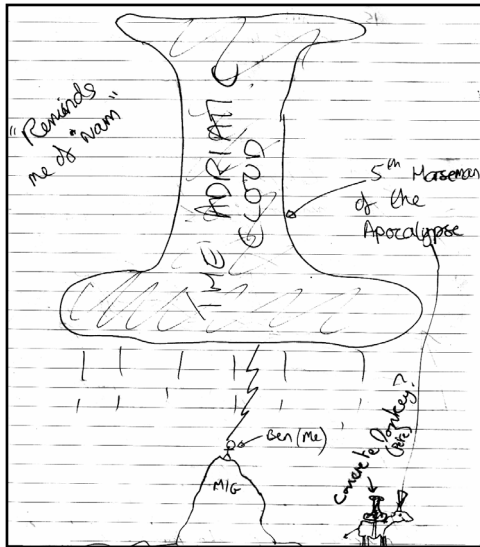 "Reminds
me of 'Nam"
THE ADRIATIC
CLOUD
5th Horseman
of the
Apocalypse
Ben (Me)
MIG
Concrete Donkey?
(Pete)